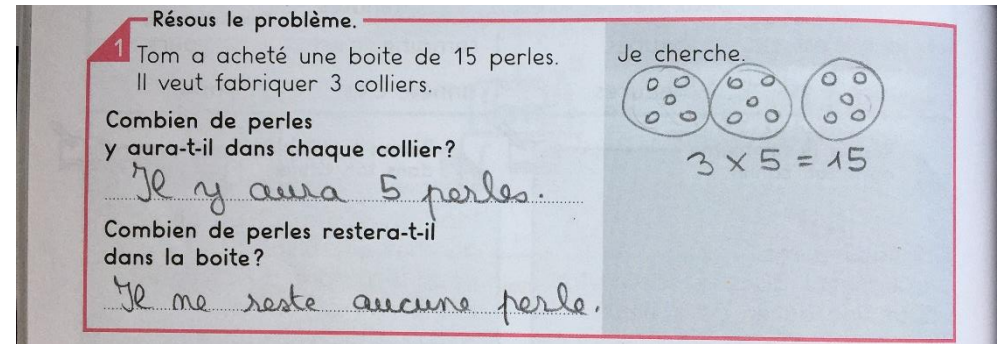 Résous le problème.
1 Tom a acheté une boite de 15 perles.
Il veut fabriquer 3 colliers.
Combien de perles
y aura-t-il dans chaque collier?
Il y aura 5 perles.
Combien de perles restera-t-il
dans la boite?
Il ne reste aucune perle.
Je cherche.
3 × 5 = 15